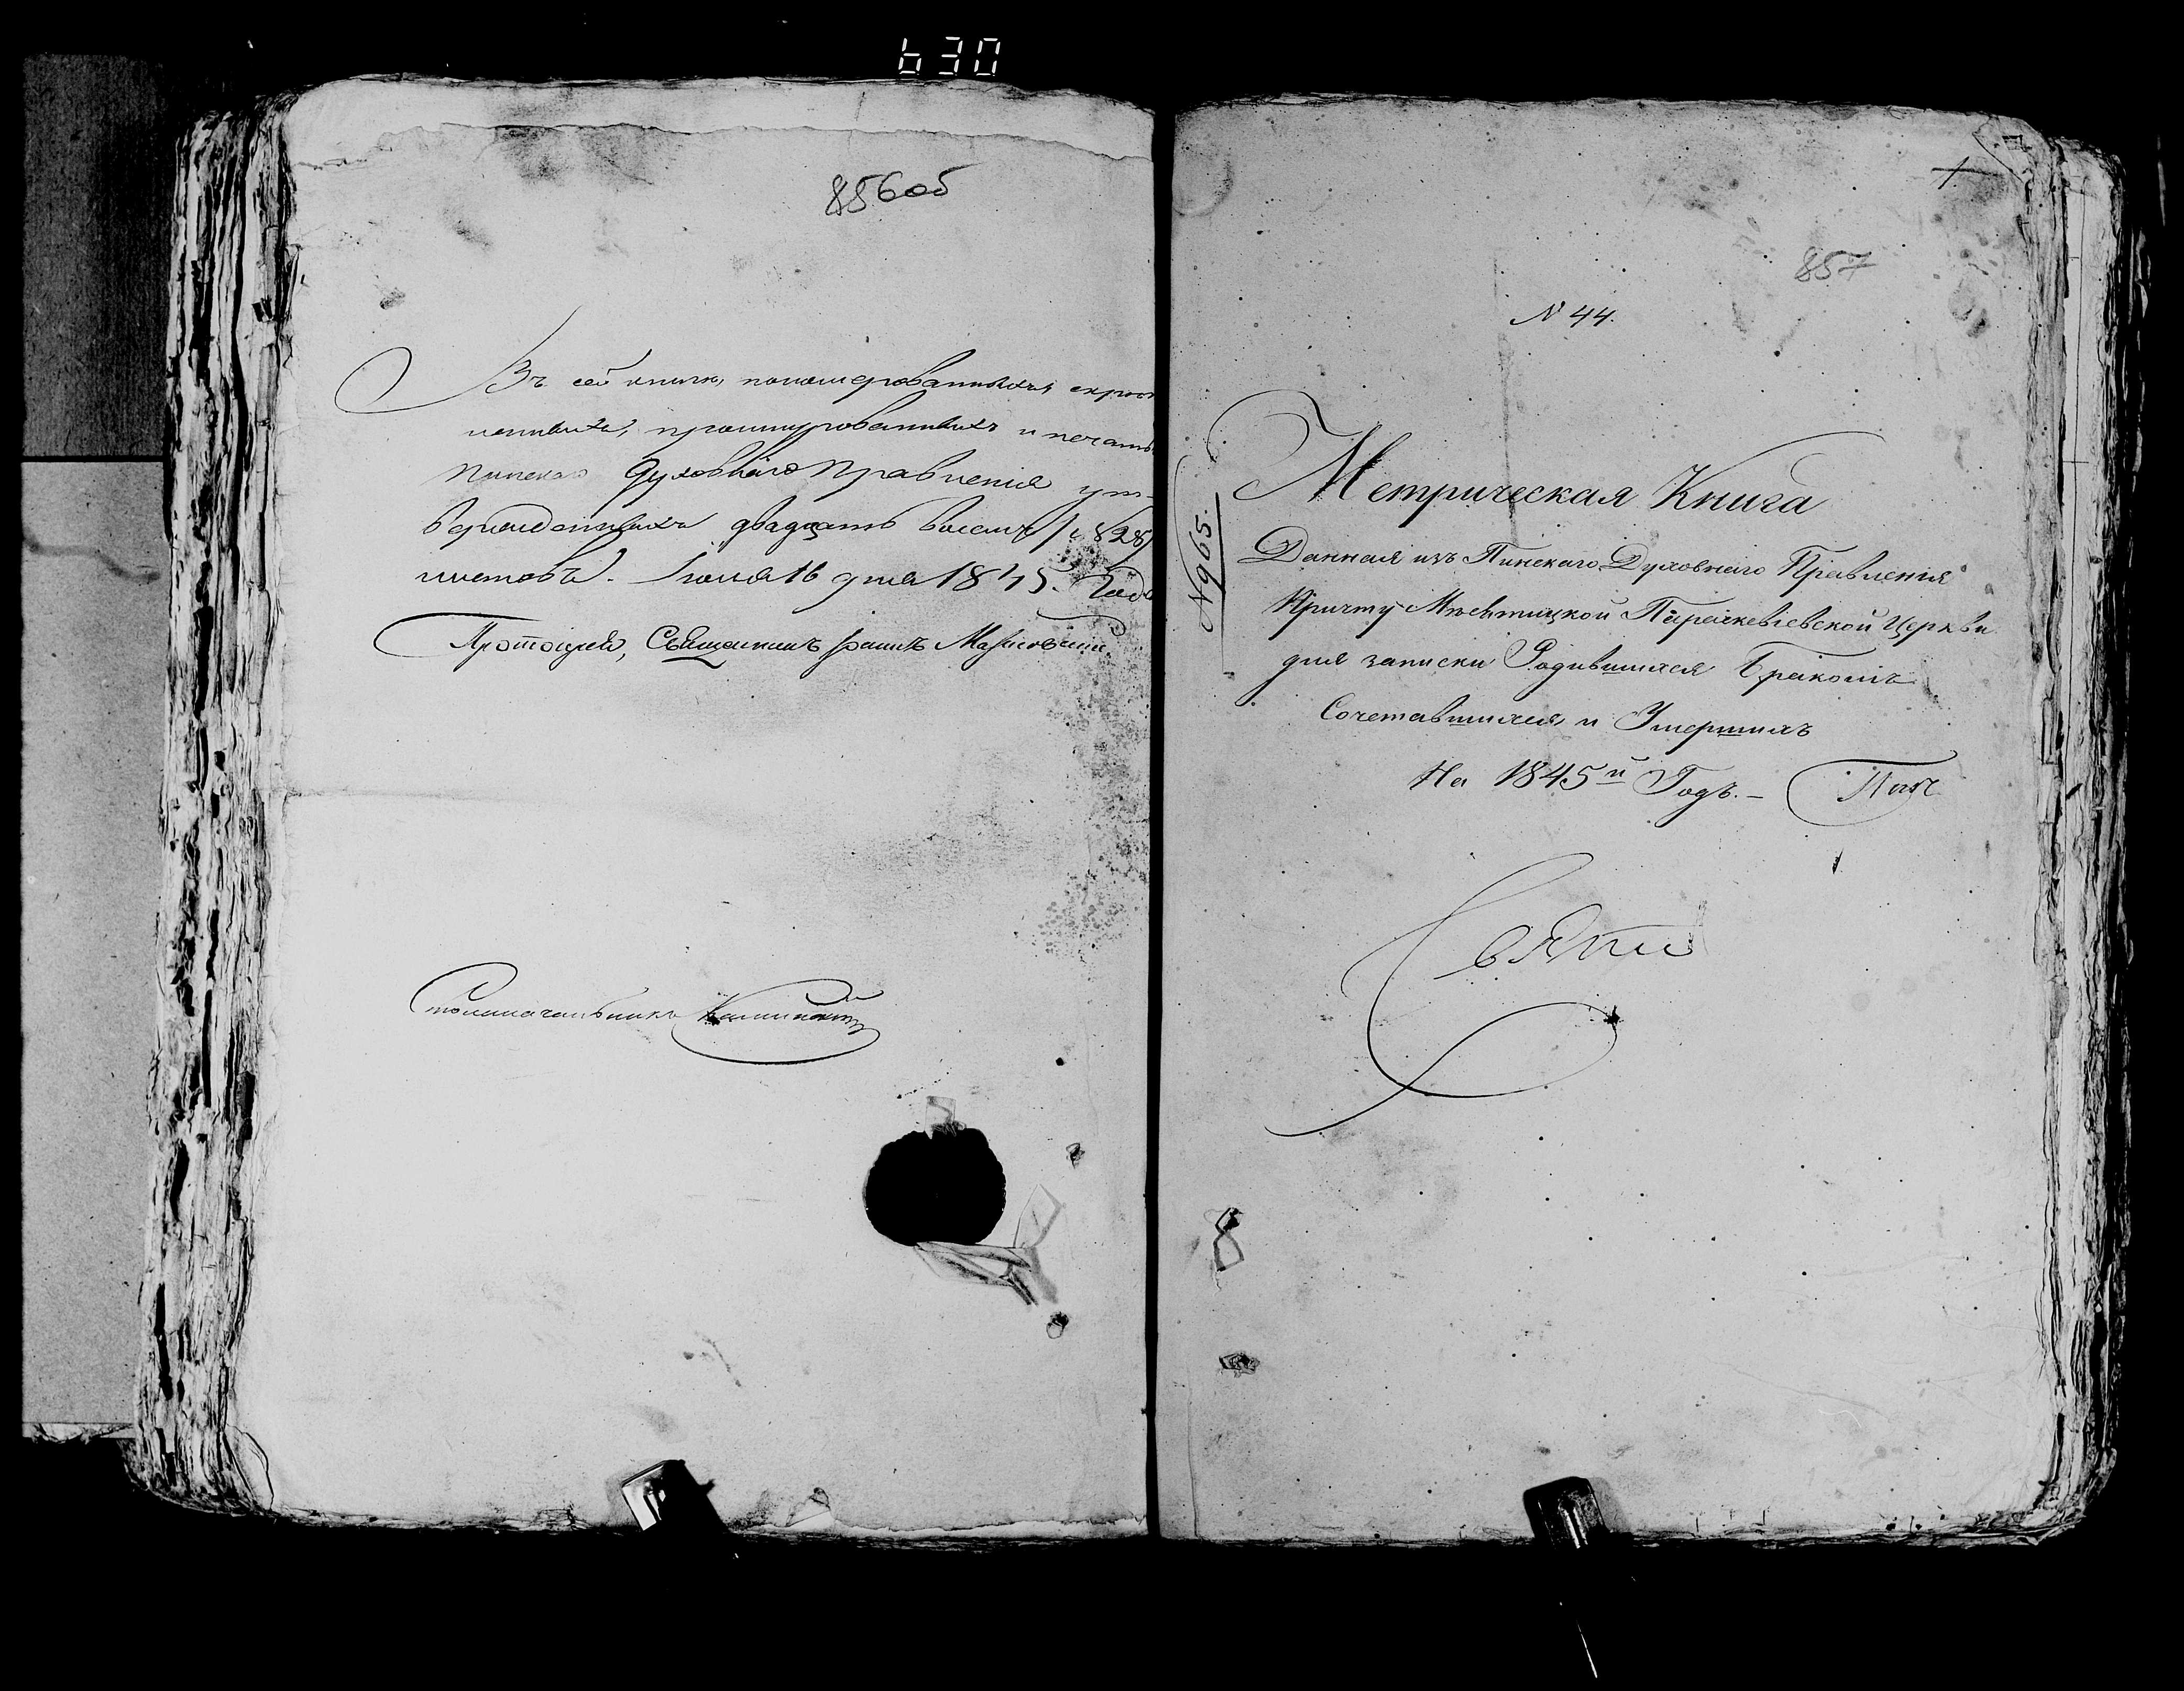 630
856об
Въ сей книгѣ, нономерованныхъ, скрѣп
ленныхъ, прошнурованныхъ и печатью
Пинскаго Духовнаго Правленія ут-
вержденныхъ двадцать восемь (28)
листовъ. Іюля 16 дня 1845. Года
Протоіерей,
Столоначальникъ
1.
857
N 44.
N 965.
Метрическая Книга
Данная изъ Пинскаго Духовнаго Правленія
Причту Параскевіевской Церкви
для записки Родившихся Бракомъ
Сочетавшихся, и Умершихъ
На 1845й Годъ.–